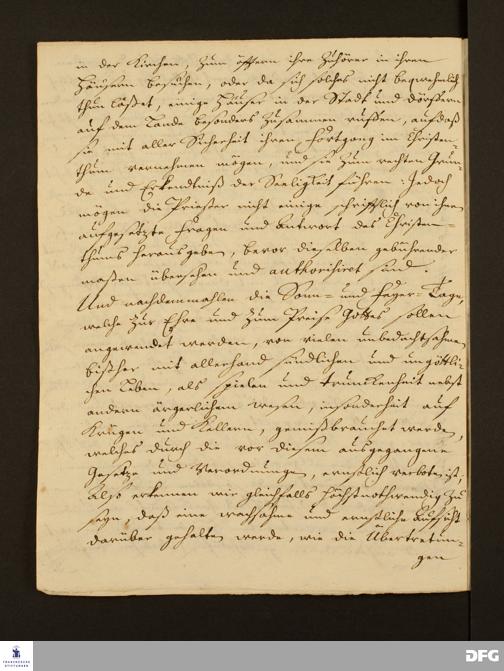 in der Kirchen, zum öfftern ihre Zuhörer in ihren
Häusern besuchen, oder da sich solches nicht beqwehmlich
thun läßet, einige Häuser in der Stadt und Dorffern
auf dem Lande besonders zusammen ruffen, auf daß
sie mit aller Sicherheit ihren Fortgang im Christen-
thum vernehmen mögen, und sie zum rechten Grun-
de und Erkendtniß der Seeligkeit führen: Jedoch
mögen die Priester nicht einige schrifftlich von ihnen
aufgesetzte Fragen und Antwort des Christen-
thums herausgeben, bevor dieselben gebührender
maßen übersehen und authorisiret sind.
Und nachdemmahlen die Sonn- und Feyer-Tage,
welche zur Ehre und zum Preise Gottes sollen
angewendet werden, von vielen unbedachtsahmen
bißher mit allerhand sündlichen und ungöttli-
chen Leben, als spielen und trunckenheit nebst
andern ärgerlichem wesen, insonderheit auf
Krügen und Kellern, gemißbrauchet werden,
welches durch die vor diesem ausgegangene
Gesetze und Verordnungen, ernstlich verboten ist,
Also erkennen wir gleichfalls höchstnothwendig zu
seyn, daß eine wachsahme und ernstliche Aufsicht
darüber gehalten werde, wie die Übertretun-
gen
FRANCKESCHE
STIFTUNGEN
DFG